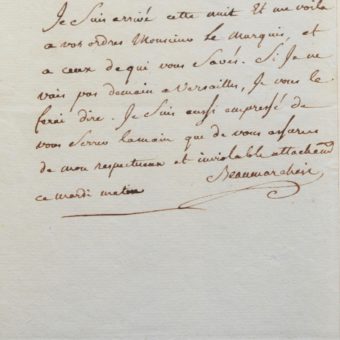 Je suis arrivé cette nuit Et me voila
a vos ordres Monsieur Le Marquis, et
a ceux de qui vous Savés. Si Je ne
vais pas demain a Versailles, Je vous le
ferai dire. Je Suis aussi empressé de
vous Serrer lamain que de vous assurer
de mon respectueux et inviolable attachemt
Beaumarchais
ce mardi matin